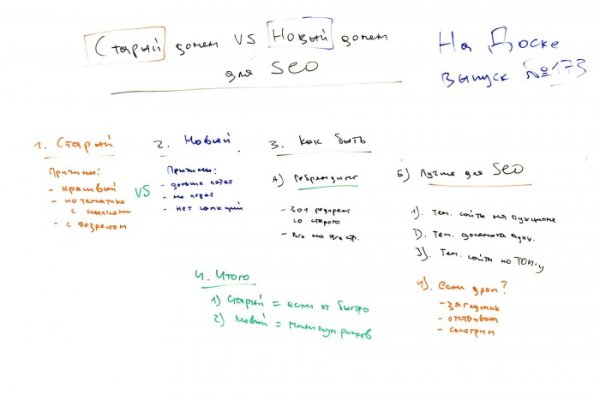 Старый домен VS Новый домен
для SEO
На Доске
выпуск №173
1. Старый
Причины:
- красивый
- по тематике
с ссылками
- с возрастом
VS
2. Новый
Причины:
- дольше
- не
- нет санкций
3. Как быть
А) Ребрендинг
- 301 редирект
со старого
- Все на все стр.
Б) Лучше для SEO
1). Тем. сайты на аукционе
2). Тем. домены аукц.
3). Тем. сайты по ТОП-у
4). если дроп?
- заглушка
- отстойник
- смотрим
4. Итого
1) Старый = если ок быстро
2) Новый = минимум рисков